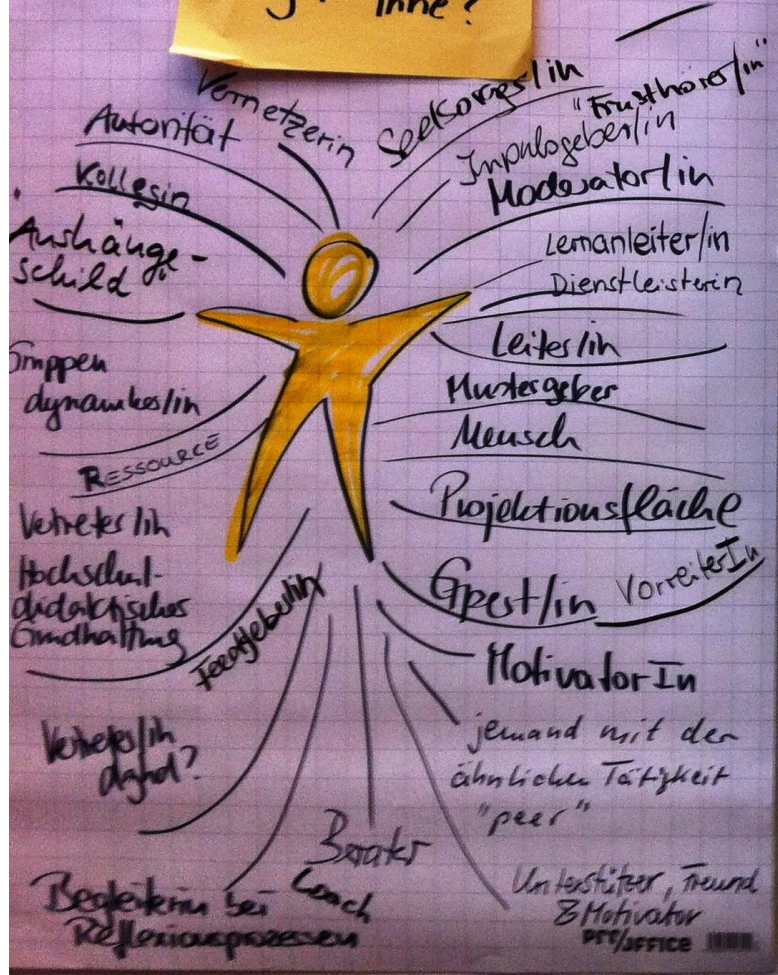 Ihne?
Vernetzerin
Autorität
Kollegin
Aushänge-
schild
Gruppen
dynamiker/in
RESSOURCE
Vertreter/in
Hochschul-
didaktisches
Grundhaltung
Feedgeber/in
Vertreter/in
dghd?
Begleiterin bei
Reflexionsprozessen
Berater
Coach
Seelsorger/in
"Frusthörer/in"
Impulsgeber/in
Moderator/in
Lernanleiter/in
Dienstleisterin
Leiter/in
Mustergeber
Mensch
Projektionsfläche
Expert/in
VorreiterIn
MotivatorIn
jemand mit der
ähnlichen Tätigkeit
"peer"
Unterstützer, Freund
& Motivator